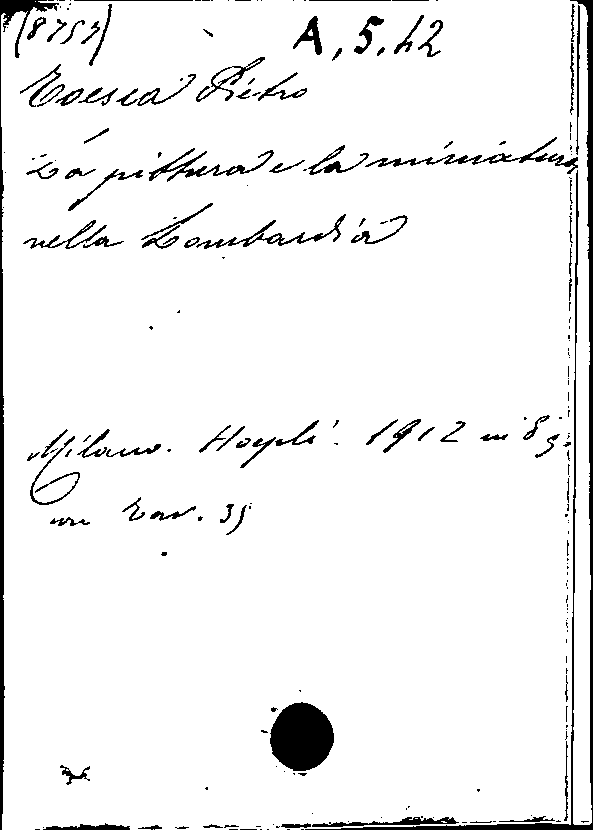 (8757)
A, 5. 42
Toesca Pietro
La pittura e la miniatura
nella Lombardia
Milano. Hoepli. 1912 in 8 g.
con tav. 35